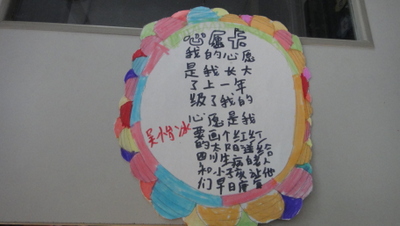 心愿卡
我的心愿
是我长大
了上一年
级了我的
心愿是我
要画个红红
的太阳送给
四川生病的老人
和小孩让他
们早日康复
吴惜冰